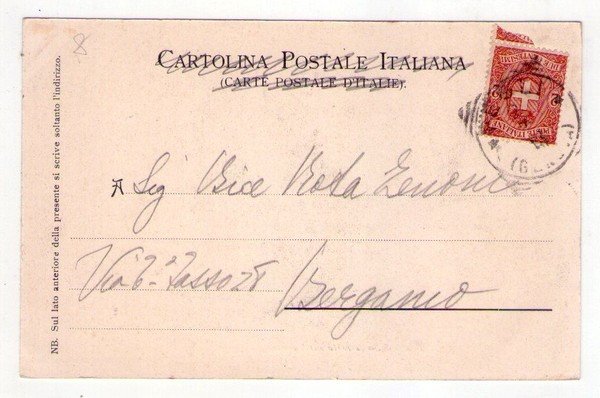 8
CARTOLINA POSTALE ITALIANA
(CARTE POSTALE D'ITALIE).
A Sig Bice Rota Zenoni
Via T. Tasso 28
Bergamo
NB. Sul lato anteriore della presente si scrive soltanto l'indirizzo.
(GENOVA)